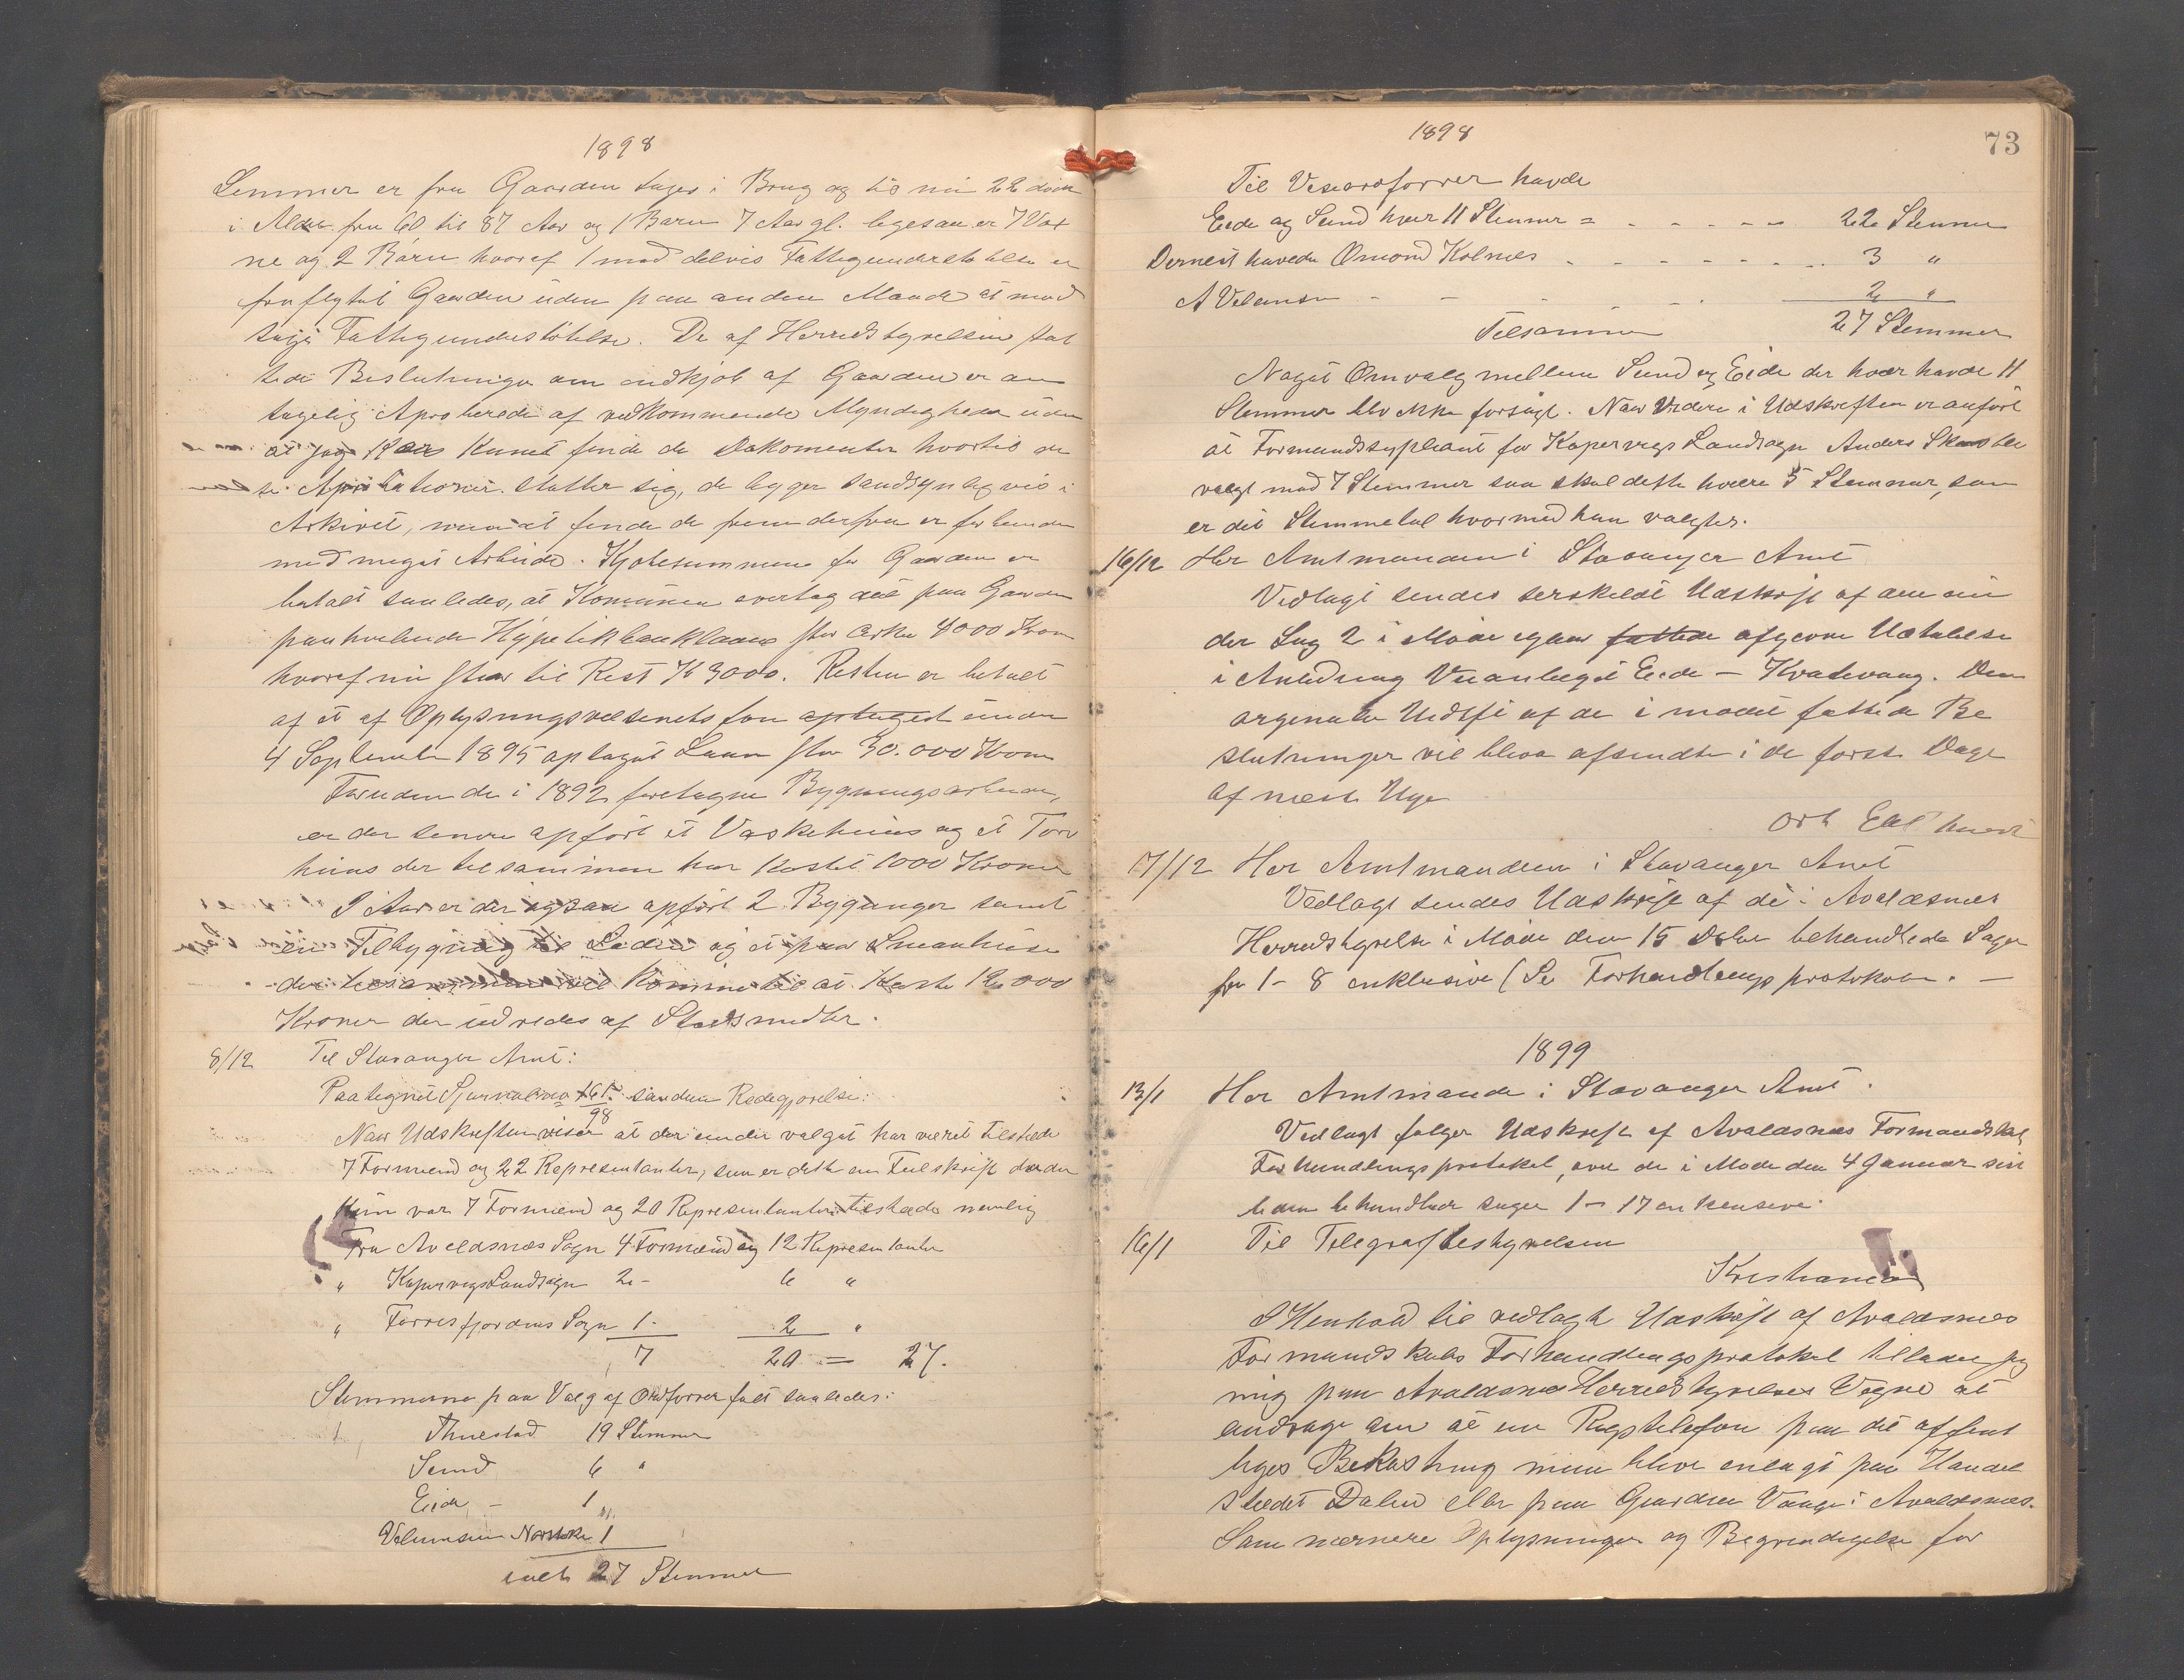 1898
Lemmer er fra Gaarden toges i Brug og til nu 22 döde
i Alder fra 60 til 87 Aar og 1 Barn 7 Aar gl. ligesaa er 7 Vox
ne og 2 Börn hvoraf 1 med delvis Fattigunderstötelse er
fraflytet Gaarden uden paa anden Maade at mod
taga Fattigunderstötelse. De af Herredstyrelsen fat
tede Beslutninger om indkjöb af Gaarden er an
tagelig Aproberede af vedkommende Myndigheder uden
at jeg har kunnet finde de Dokomenter hvortil de
se Aprobationer stötter sig, de ligger sandsynligvis i
Arkivet, men at finde de frem derfra er forbunden
med meget Arbeide. Kjöbesummen for Gaarden er
betalt saaledes, at Komunen overtog det paa Gaarden
paahvilende Hypotikbanklaan stor cirka 4000 Kron
hvoraf nu staar til Rest K 3000. Resten er betalt
af et af Oplysningsvæsenets fon optaget under
4 September 1895 optaget Laan stor 30.000 Kron
Foruden de i 1892 foretagne Bygningsarbeider,
er der senere opfört et Vaskehuus og et Torv
huus der tilsammen har kostet 1000 Kroner
I Aar er der ogsaa opfört 2 Bygninger samt
en Tilbygning til Laden og et par Smaahuse
der tilsammen vil komme til at koste 12000
Kroner der udredes af Stadsmidler.
8/12 Til Stavanger Amt:
Paategnet Sjurnalno 1615/98 saadan Redegjörelse:
Naar Udskriften viser at der under valget har været tilstede
7 Formænd og 22 Representanter, saa er dette en Feilskrift da der
kun var 7 Formænd og 20 Representanter tilstede nemlig
Fra Avaldsnæs Sogn 4 Formænd og 12 Representanter
" Kopervigs Landsogn 2 - 6 "
" Förresfjordens Sogn 1 - 2 "
7 20 = 27.
Stemmerne paa Valg af Ordförer falt saaledes:
Thuestad 19 Stemmer
Sund 6 "
Eide - 1 "
Velemsen Norstokke 1
ialt 27 Stemmer
1898
73
Til Viseordförrer havde
Eide og Sund hver 11 Stemmer = - - - - - 22 Stemmer
Dernest havde Omond Kolnes - - - - - - - 3 "
A Velemsen - - - - - - 2 "
Tilsammen 27 Stemmer
Noget Omvalg mellem Sund og Eide der hver havde 11
Stemmer blev ikke forsögt. Naar videre i Udskriften er anfört
at Formandsupleant for Kopervigs Landsogn Anders blev
valgt med 7 Stemmer saa skal dette være 5 Stemmer, som
er det Stemmetal hvormed han valgtes.
16/12 Her Amtmanden i Stavanger Amt
Vedlagt sendes serskildt Udskrift af den un
der Sag 2 i Möde igaar fattede afgivne Udtalelse
i Anledning Veianlæget Eide - Kvalevaag. Den
orginale Udskft af de i mödet fattede Be
slutninger vil blive afsendte i de förste Dage
af næste Uge
17/12 Her Amtmanden i Stavanger Amt
Vedlagt sendes Udskrift af de i Avaldsnæs
Herredstyrelse i Möde den 15 Dsbr behandlede Sager
fra 1 - 8 inklusive (Se Forhandlings protokolen. -
1899
13/1 Her Amtmanden i Stavanger Amt.
Vedlagt fölger Udskrift af Avaldsnæs Formandskabs
Forhandlingsprotokol, over de i Möde den 4 Januar sist
leden behandlede sager 1 - 17 inklusive.
16/1 Til Telegrafbestyrelsen
Kristiania
I Henhold til vedlagte Udskrift af Avaldsnæs
Formandskabs Forhandlingsprotokol tillader jeg
mig paa Avaldsnæs Herredstyrelses Vegne at
andrage om at en Rigstelefon paa det offent
liges Bekostning maa blive anlagt paa Handel
stedet Dalen eller paa Gaarden Vaage i Avaldsnæs.
Som nærmere Oplysninger og Begrundigelse for